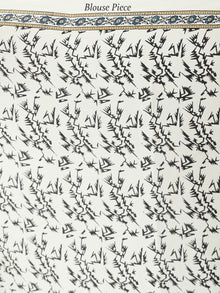 Blouse Piece